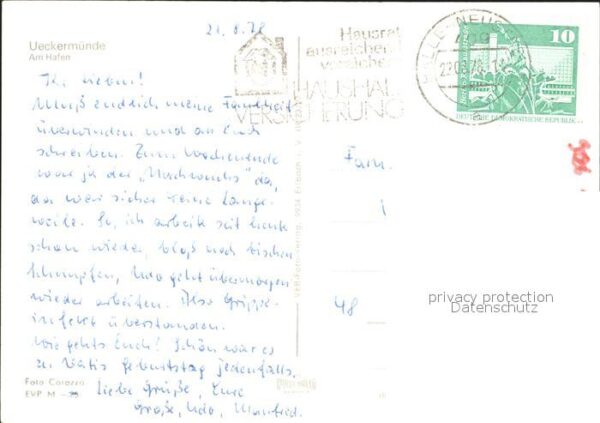 21.8.78
Ueckermünde
Am Hafen
Ihr Lieben!
Muß endlich meine Faulheit
überwinden und an Euch
schreiben. Zum Wochenende
war ja der "Nachwuchs" da,
da war sicher keine Lange-
weile. So, ich arbeite seit heute
schon wieder, bloß noch bischen
Schnupfen, Udo geht übermorgen
wieder arbeiten. Also Grippe-
infekt überstanden.
Wie gehts Euch? Schön war es
zu Vatis Geburtstag jedenfalls.
Liebe Grüße, Eure
Udo, Manfred.
Foto Corazza
EVP M
Hausrat
ausreichend
versichert
HAUSHALT
VERSICHERUNG
HALLE-NEUSTADT
10
DEUTSCHE DEMOKRATISCHE REPUBLIK
Fam.
48
privacy protection
Datenschutz